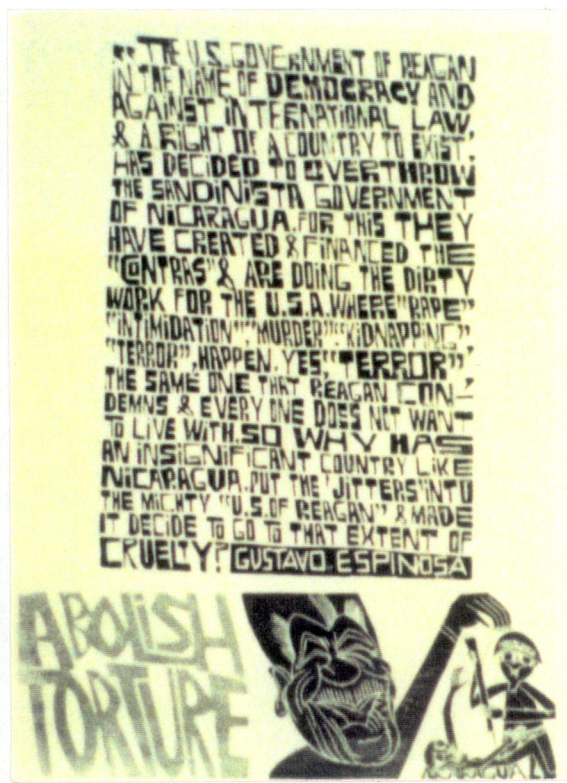 "THE U.S. GOVERNMENT OF REAGAN
IN THE NAME OF DEMOCRACY AND
AGAINST INTERNATIONAL LAW,
& A RIGHT OF A COUNTRY TO EXIST,
HAS DECIDED TO OVERTHROW
THE SANDINISTA GOVERNMENT
OF NICARAGUA. FOR THIS THEY
HAVE CREATED & FINANCED THE
"CONTRAS" & ARE DOING THE DIRTY
WORK FOR THE U.S.A. WHERE "RAPE"
"INTIMIDATION", "MURDER", "KIDNAPPING",
"TERROR", HAPPEN. YES, "TERROR",
THE SAME ONE THAT REAGAN CON-
DEMNS & EVERY ONE DOES NOT WANT
TO LIVE WITH. SO WHY HAS
AN INSIGNIFICANT COUNTRY LIKE
NICARAGUA. PUT THE 'JITTERS' INTO
THE MIGHTY "U.S. OF REAGAN" & MADE
IT DECIDE TO GO TO THAT EXTENT OF
CRUELTY? GUSTAVO. ESPINOSA
ABOLISH
TORTURE